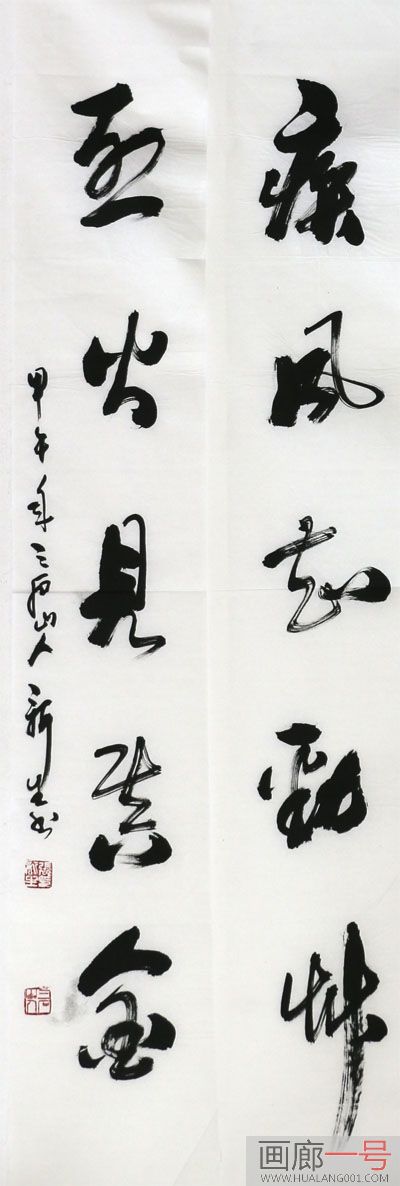 疾风知劲草
烈火见真金
甲午年三石山人新生书
画廊一号
WWW.HUALANG001.COM